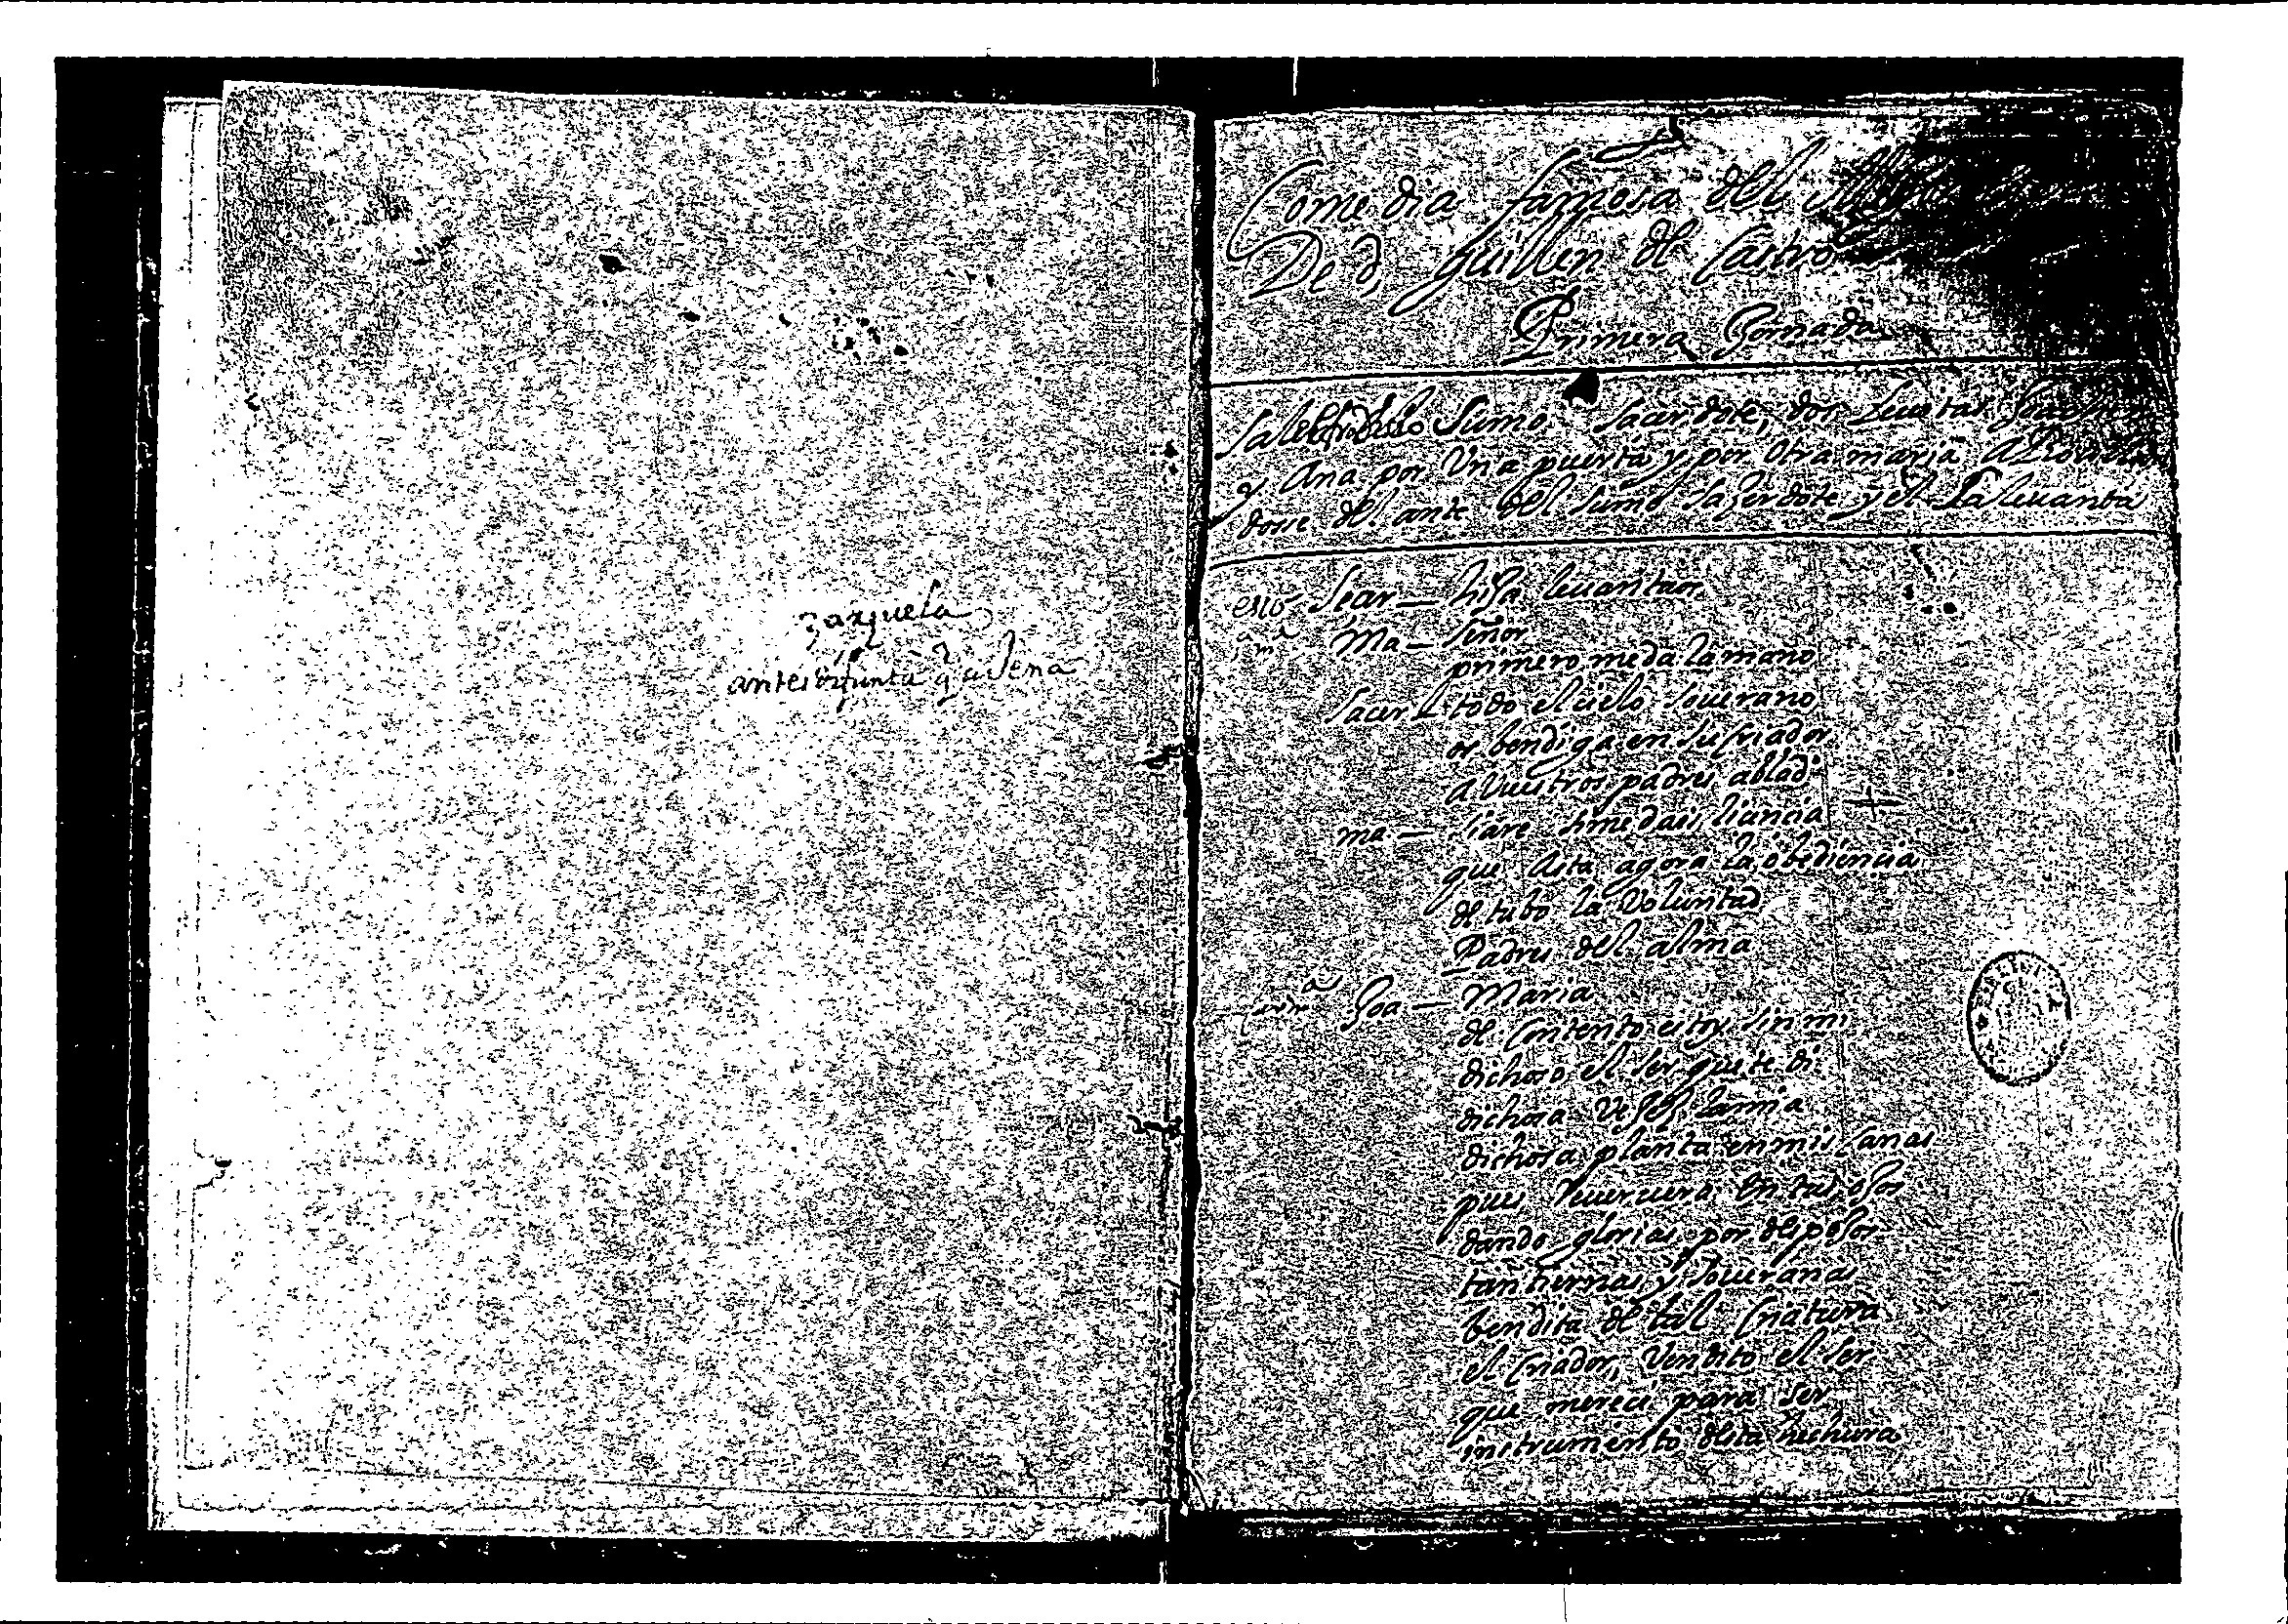 zarzuela
Comedia famosa del
De d. Guillen de Castro
Primera Jornada
Sale el sumo sacerdote, dos levitas Joachin
y Ana por Una puerta y por Otra maria
dosse delante del sumo sazerdote y el la levanta
Sacer — hija levantaos
Ma — Señor
primero me da la mano
Sacer — todo el cielo soverano
os bendiga en su criador
a Vuestros padres ablad
ma — si are si me dais licencia
que asta agora la obediencia
detubo la Voluntad
Padres del alma
Joa — Maria
de contento estoy sin mi
dichoso el ser que te di
dichosa Vejez la mia
dichosa planta en mis canas
pues reverdeze en tus ojos
dando glorias por despojos
tan tiernas y soveranas
bendita de tal criatura
el criador, Vendito el ser
que mereci para ser
instrumento desta hechura